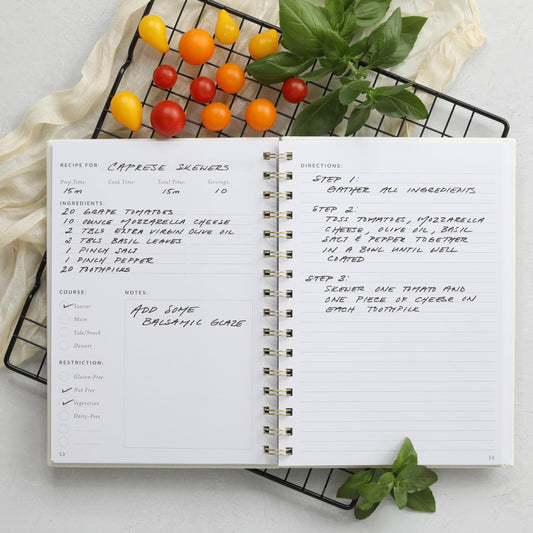 RECIPE FOR: CAPRESE SKEWERS
Prep Time: Cook Time: Total Time: Servings:
15m 15m 10
INGREDIENTS:
20 GRAPE TOMATOES
10 OUNCE MOZZARELLA CHEESE
2 TBLS EXTRA VIRGIN OLIVE OIL
2 TBLS BASIL LEAVES
1 PINCH SALT
1 PINCH PEPPER
20 TOOTHPICKS
COURSE:
Starter
Main
Side/Snack
Dessert
RESTRICTION:
Gluten-Free
Nut Free
Vegetarian
Dairy-Free
53
NOTES:
ADD SOME
BALSAMIC GLAZE
DIRECTIONS:
STEP 1:
GATHER ALL INGREDIENTS
STEP 2:
TOSS TOMATOES, MOZZARELLA
CHEESE, OLIVE OIL, BASIL
SALT & PEPPER TOGETHER
IN A BOWL UNTIL WELL
COATED
STEP 3:
SKEWER ONE TOMATO AND
ONE PIECE OF CHEESE ON
EACH TOOTHPICK
54